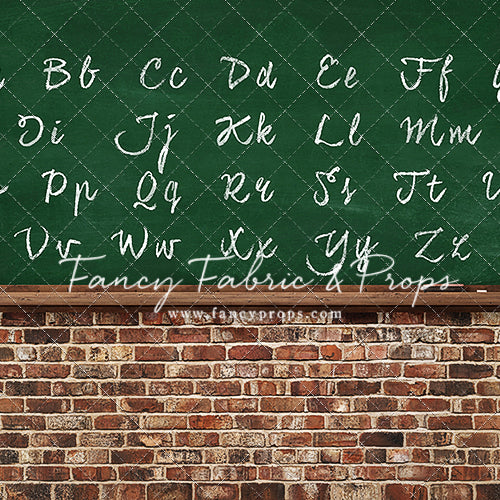 Bb Cc Dd Ee Ff
Ii Jj Kk Ll Mm
Pp Qq Rr Ss Tt
Vv Ww Xx Yy Zz
Fancy Fabric & Props
www.fancyprops.com